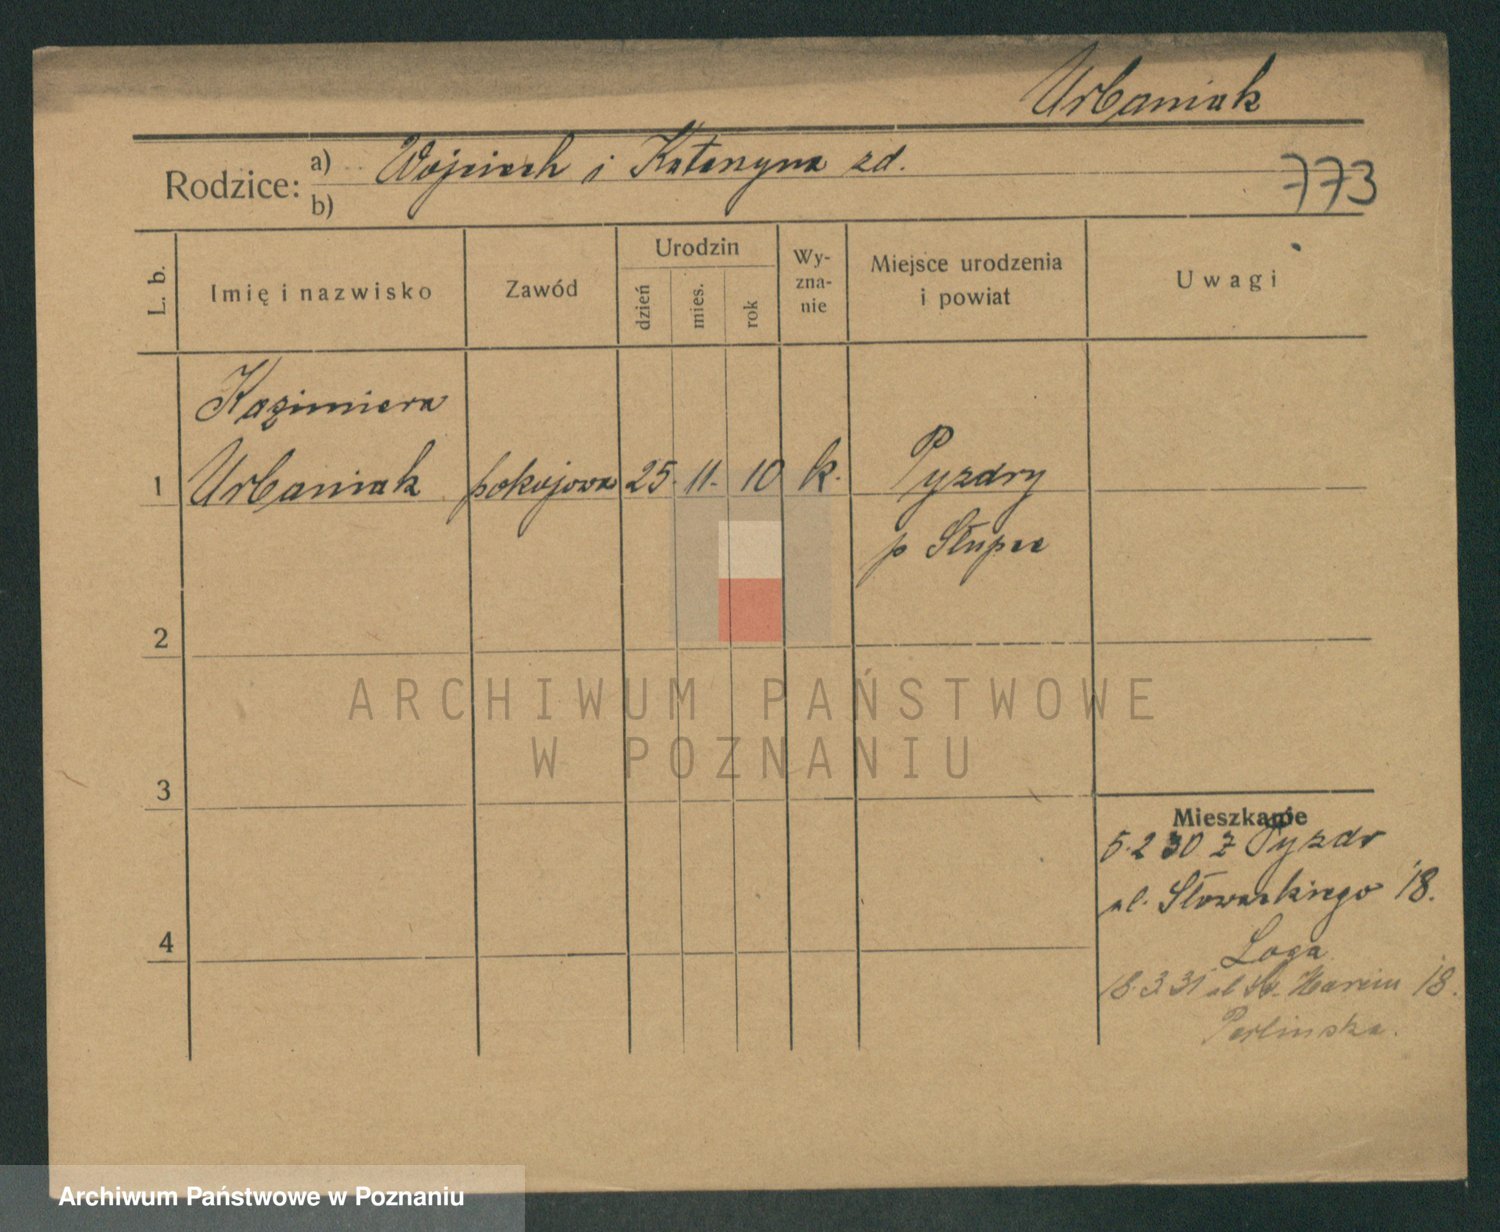 Urbaniak
Rodzice: a) Wojciech i Katarzyna zd.
b)
773
L. b.
Imię i nazwisko
Zawód
Urodzin
dzień
mies.
rok
Wy-
zna-
nie
Miejsce urodzenia
i powiat
Uwagi
Kazimiera
1 Urbaniak pokojowa 25. 11. 10 k. Pyzdry
p Słupca
2
3
4
Mieszkanie
5.2 30 z Pyzdr
ul. Słowackiego 18.
Loga
18.3.31 ul Św. Marcin 18.
Perlinska.
ARCHIWUM PAŃSTWOWE
W POZNANIU
Archiwum Państwowe w Poznaniu